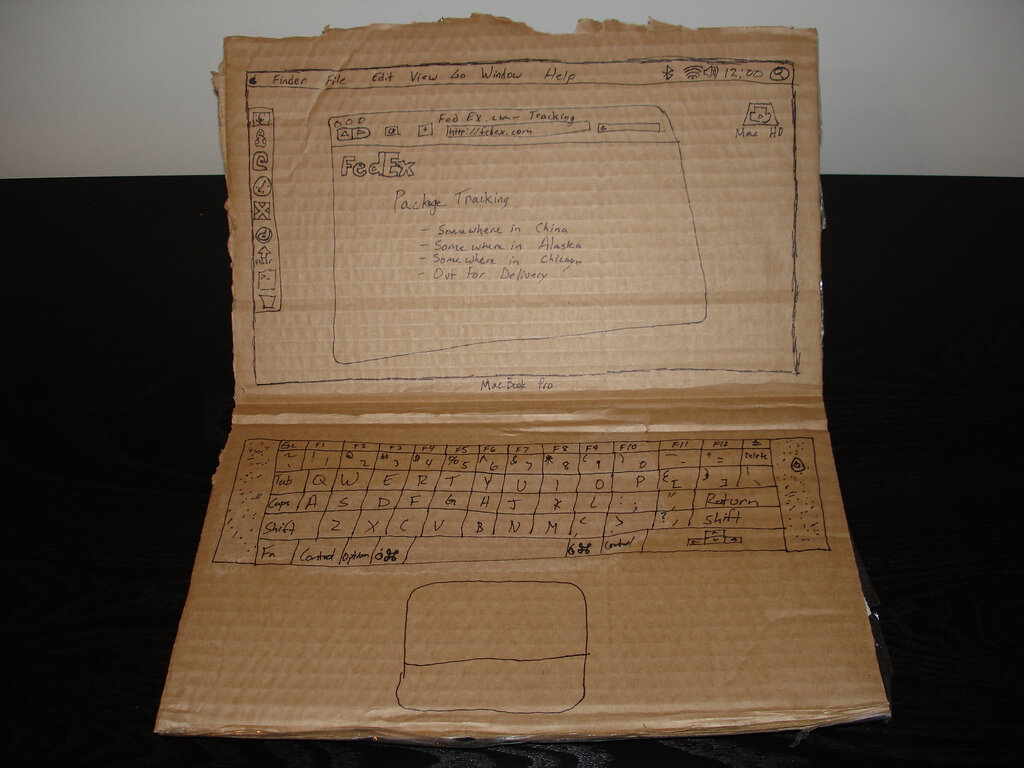 Finder File Edit View Go Window Help 12:00
Fed Ex.com - Tracking
http://fedex.com
Mac HD
FedEx
Package Tracking
- Somewhere in China
- Somewhere in Alaska
- Somewhere in Chicago
- Out For Delivery
MacBook Pro
Esc F1 F2 F3 F4 F5 F6 F7 F8 F9 F10 F11 F12
~ ` ! 1 @ 2 # 3 $ 4 % 5 ^ 6 & 7 * 8 ( 9 ) 0 _ - + = Delete
Tab Q W E R T Y U I O P { [ } ] | \
Caps A S D F G H J K L : ; " Return
Shift Z X C V B N M < , > ? / Shift
Fn Control Option ⌘ ⌘ Control